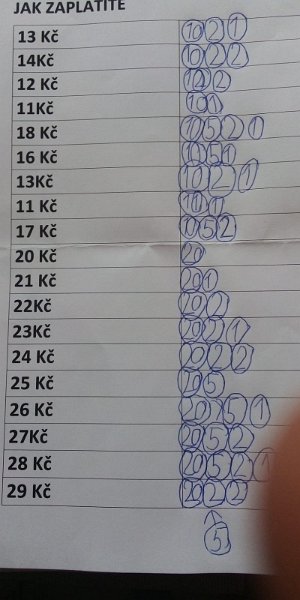 JAK ZAPLATÍTE
13 Kč 10 2 1
14Kč 10 2 2
12 Kč 10 2
11Kč 10 1
18 Kč 10 5 2 1
16 Kč 10 5 1
13Kč 10 2 1
11 Kč 10 1
17 Kč 10 5 2
20 Kč 20
21 Kč 20 1
22Kč 20 2
23Kč 20 2 1
24 Kč 20 2 2
25 Kč 20 5
26 Kč 20 5 1
27Kč 20 5 2
28 Kč 20 5 2 1
29 Kč 20 2 2
5